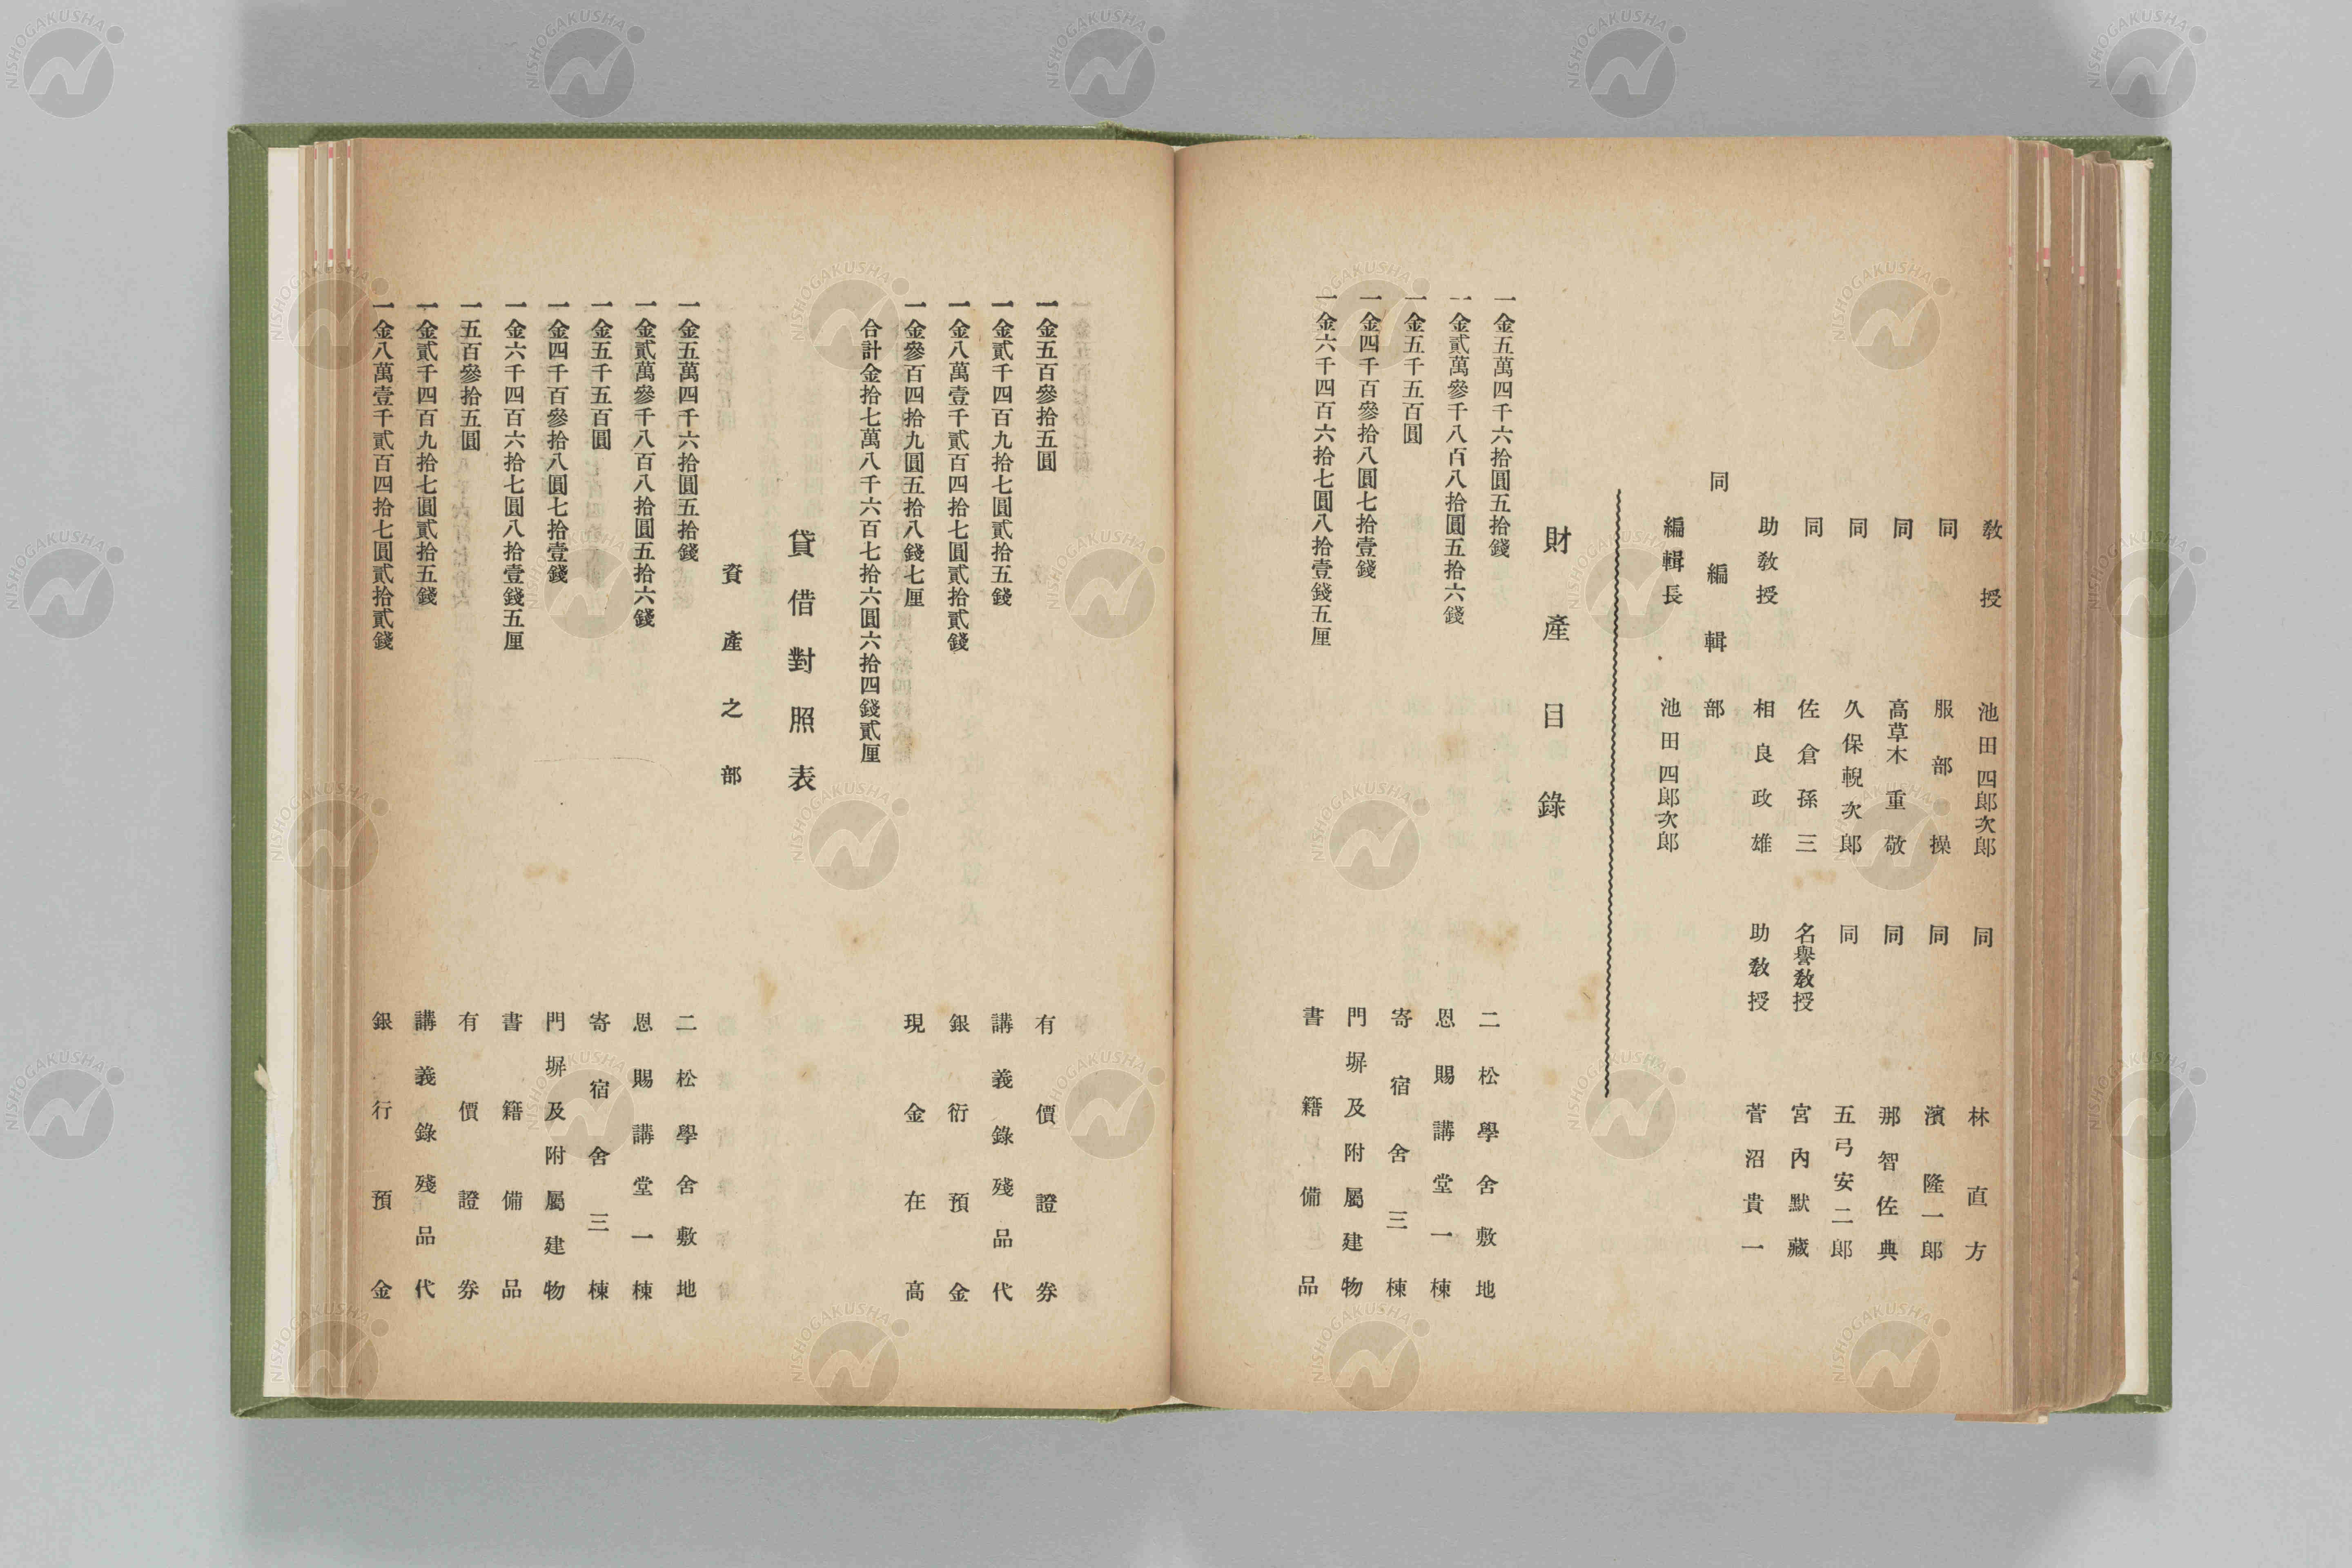 教授 池田四郎次郎 同 林直方
同 服部操 同 濱隆一郎
同 高草木重敬 同 那智佐典
同 久保輗次郎 同 五弓安二郎
同 佐倉孫三 名譽教授 宮內默藏
助教授 相良政雄 助教授 菅沼貴一
同編輯部
編輯長 池田四郎次郎
財產目錄
一金五萬四千六拾圓五拾錢 二松學舍敷地
一金貳萬參千八百八拾圓五拾六錢 恩賜講堂一棟
一金五千五百圓 寄宿舍三棟
一金四千百參拾八圓七拾壹錢 門塀及附屬建物
一金六千四百六拾七圓八拾壹錢五厘 書籍備品
一金五百參拾五圓 有價證券
一金貳千四百九拾七圓貳拾五錢 講義錄殘品代
一金八萬壹千貳百四拾七圓貳拾貳錢 銀行預金
一金參百四拾九圓五拾八錢七厘 現金在高
合計金拾七萬八千六百七拾六圓六拾四錢貳厘
貸借對照表
資產之部
一金五萬四千六拾圓五拾錢 二松學舍敷地
一金貳萬參千八百八拾圓五拾六錢 恩賜講堂一棟
一金五千五百圓 寄宿舍三棟
一金四千百參拾八圓七拾壹錢 門塀及附屬建物
一金六千四百六拾七圓八拾壹錢五厘 書籍備品
一五百參拾五圓 有價證券
一金貳千四百九拾七圓貳拾五錢 講義錄殘品代
一金八萬壹千貳百四拾七圓貳拾貳錢 銀行預金
NISHOGAKUSHA